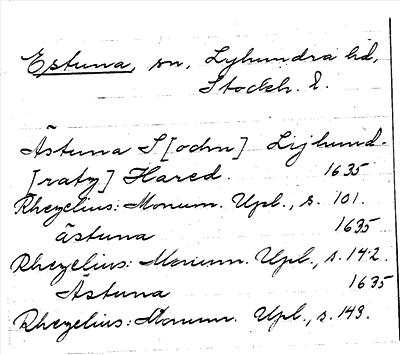 Estuna, sn, Lyhundra hd,
Stockh. l.
Ästuna S[ochn] Lijhund-
[raty] Hared. 1635
Rhezelius: Monum. Upl., s. 101.
ästuna 1635
Rhezelius: Monum. Upl., s. 142.
Ästuna 1635
Rhezelius: Monum. Upl., s. 143.